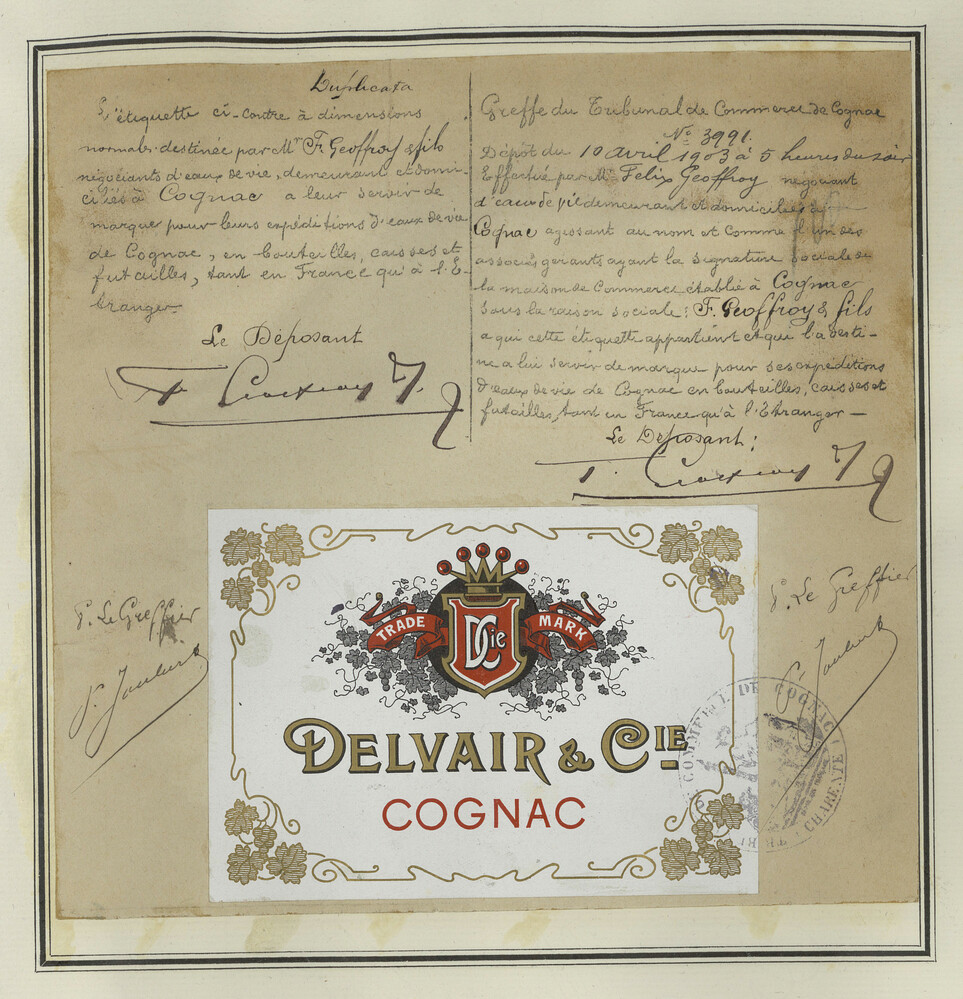 Duplicata
L'étiquette ci-contre à dimensions
normales destinée par Mrs F. Geoffroy & fils
négociants d'eaux de vie, demeurant et domi-
ciliés à Cognac a leur servir de
marque pour leurs expéditions d'eaux de vie
de Cognac, en bouteilles, caisses et
futailles, tant en France qu'à l'E-
tranger
Le Déposant
F. Geoffroy
Greffe du Tribunal de Commerce de Cognac
No 3991.
Dépôt du 10 avril 1903 à 5 heures du soir
Effectué par Mr Felix Geoffroy négociant
d'eaux de vie demeurant et domicilié à
Cognac agissant au nom et comme l'un des
associés gérants ayant la signature sociale de
la maison de Commerce établie à Cognac
sous la raison sociale: F. Geoffroy & fils
a qui cette étiquette appartient et qui l'a desti-
née a lui servir de marque pour ses expéditions
d'eaux de vie de Cognac en bouteilles, caisses et
futailles, tant en France qu'à l'Etranger —
Le Déposant:
F. Geoffroy
P. Le Greffier
P. Le Greffier
TRADE MARK
DCie
DELVAIR & CIE
COGNAC
COMMERCE DE COGNAC
CHARENTE